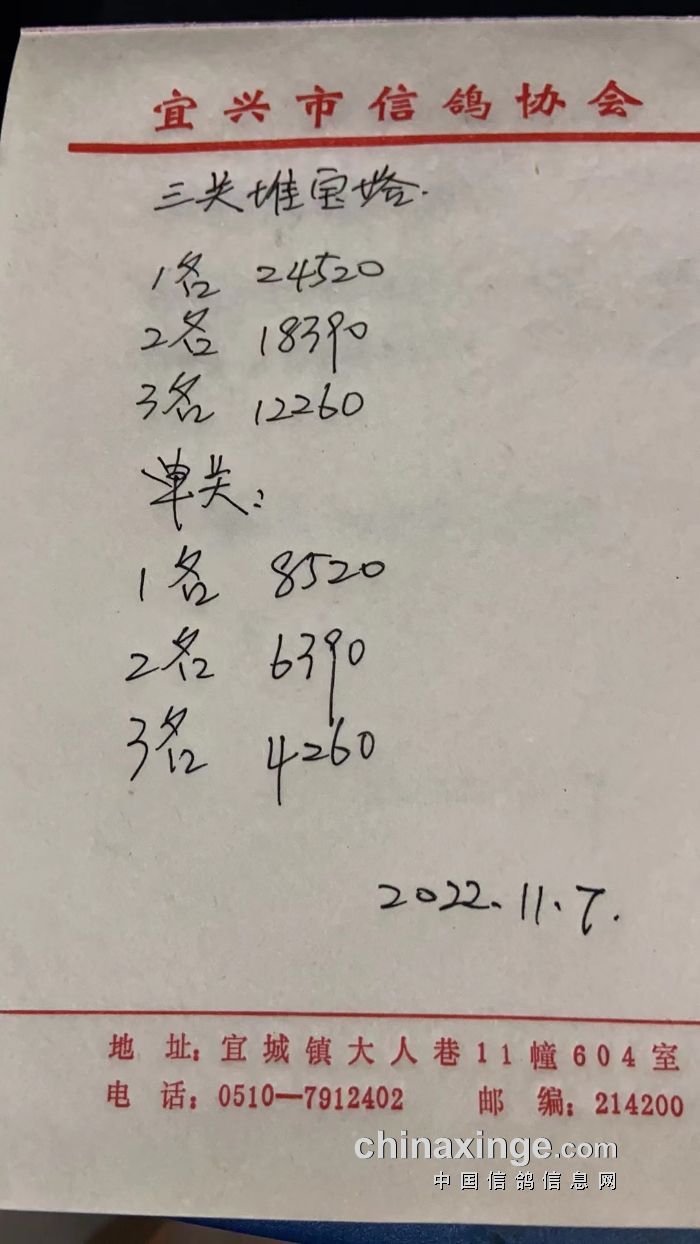 宜兴市信鸽协会
三关堆宝塔.
1名 24520
2名 18390
3名 12260
单关:
1名 8520
2名 6390
3名 4260
2022.11.7.
地 址: 宜城镇大人巷11幢604室
电 话: 0510—7912402 邮 编: 214200
chinaxinge.com
中国信鸽信息网